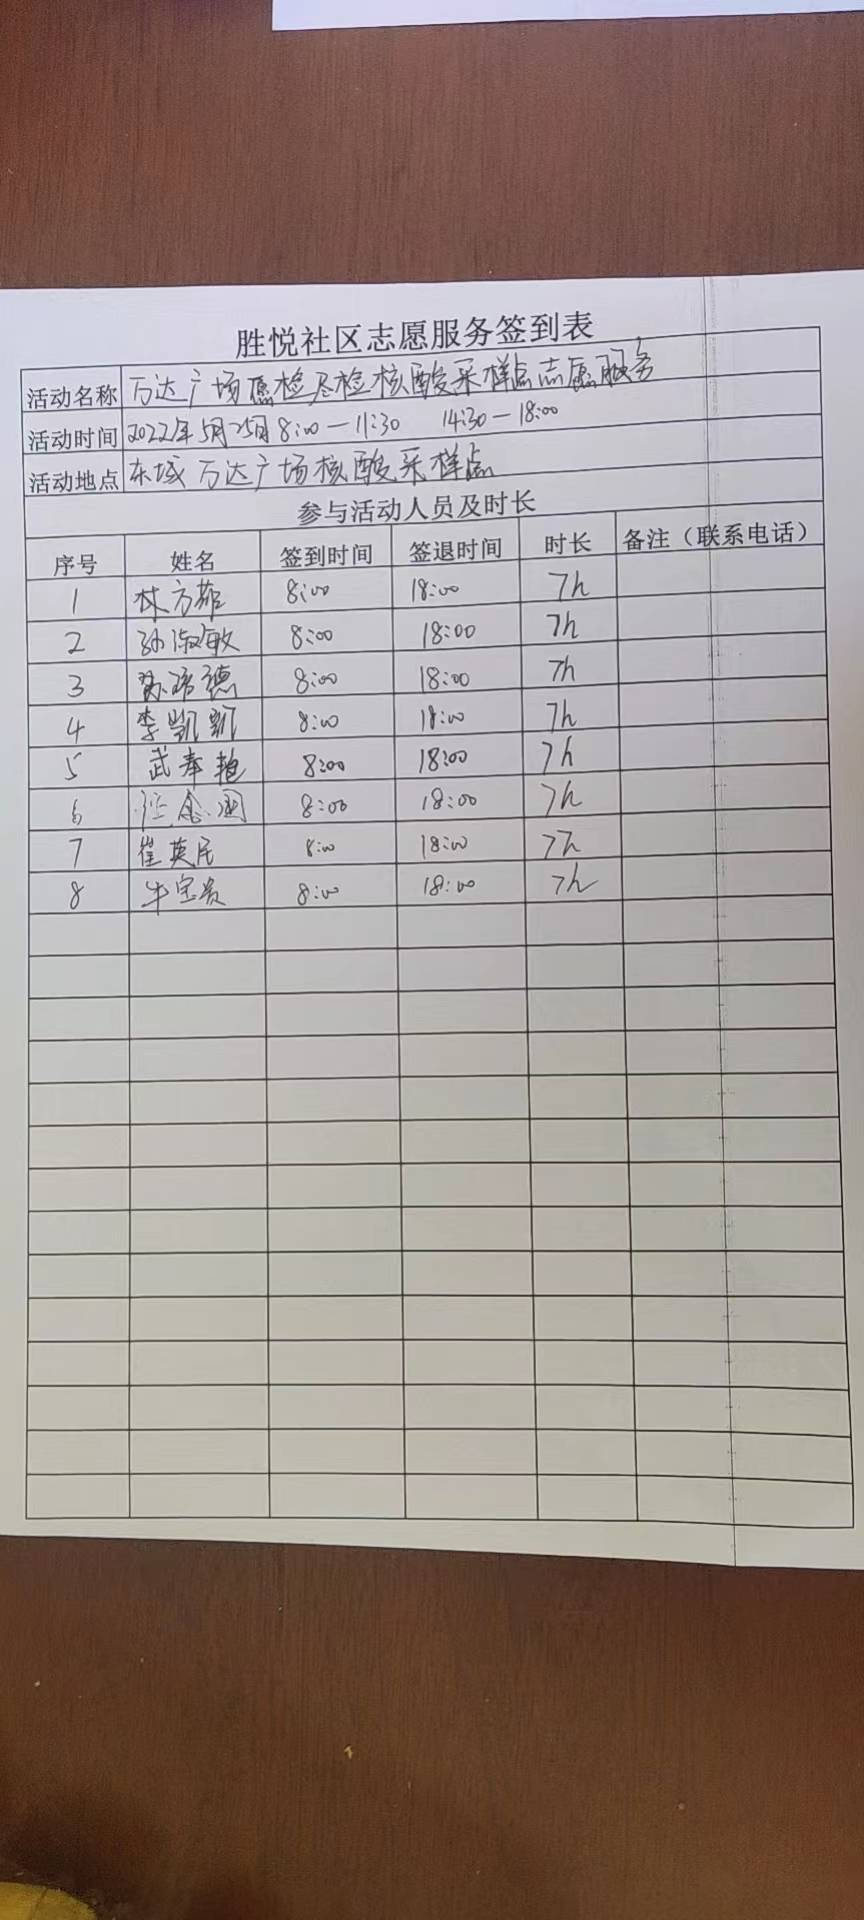 胜悦社区志愿服务签到表
活动名称 万达广场愿检尽检核酸采样点志愿服务
活动时间 2022年5月25日 8:00—11:30 14:30—18:00
活动地点 东城万达广场核酸采样点
参与活动人员及时长
序号 姓名 签到时间 签退时间 时长 备注（联系电话）
1 林方茹 8:00 18:00 7h
2 孙淑敏 8:00 18:00 7h
3 德 8:00 18:00 7h
4 李凯凯 8:00 18:00 7h
5 武春艳 8:00 18:00 7h
6 8:00 18:00 7h
7 崔英民 8:00 18:00 7h
8 牛宝贵 8:00 18:00 7h